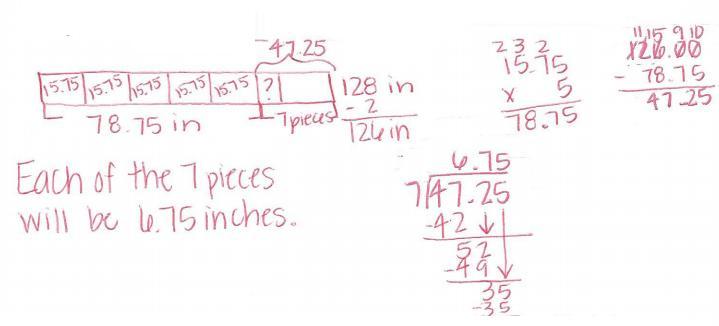 47.25
15.75 15.75 15.75 15.75 15.75 ?
78.75 in
7 pieces
128 in
- 2
126 in
2 3 2
15.75
x 5
78.75
11 15 9 10
126.00
- 78.75
47.25
Each of the 7 pieces
will be 6.75 inches.
6.75
7 47.25
-42
52
-49
35
-35